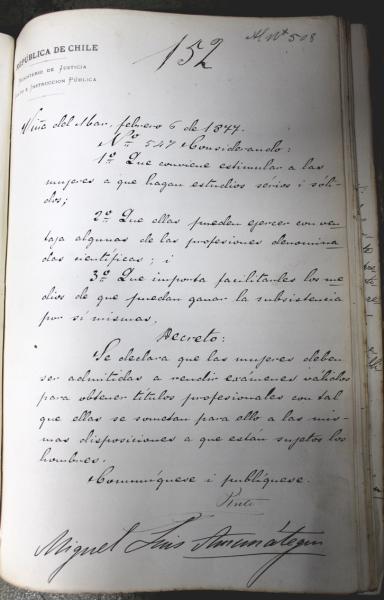 152
Al Nº 508
REPÚBLICA DE CHILE
MINISTERIO DE JUSTICIA
CULTO E INSTRUCCION PÚBLICA
Viña del Mar, febrero 6 de 1877.
Nº 547 Considerando:
1º Que conviene estimular a las
mujeres a que hagan estudios sérios i sóli-
dos;
2º Que ellas pueden ejercer con ven-
taja algunas de las profesiones denomina-
das científicas; i
3º Que importa facilitarles los me-
dios de que puedan ganar la subsistencia
por sí mismas.
Decreto:
Se declara que las mujeres deben
ser admitidas a rendir exámenes válidos
para obtener títulos profesionales con tal
que ellas se sometan para ello a las mis-
mas disposiciones a que están sujetos los
hombres.
Comuníquese i publíquese.
Pinto
Miguel Luis Amunátegui